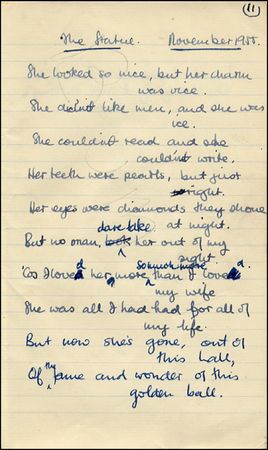 (11)
The Statue. November 1955.
She looked so nice, but her charm
was vice.
She didn't like men, and she was
ice.
She couldn't read and she
couldn't write.
Her teeth were pearls, but just
right.
Her eyes were diamonds they shone
at night.
But no man, dare take her out of my
sight
'Cos I loved her, more so much more than I loved
my wife
She was all I had had for all of
my life.
But now she's gone, out of
this hall,
Of the fame and wonder of this
golden ball.